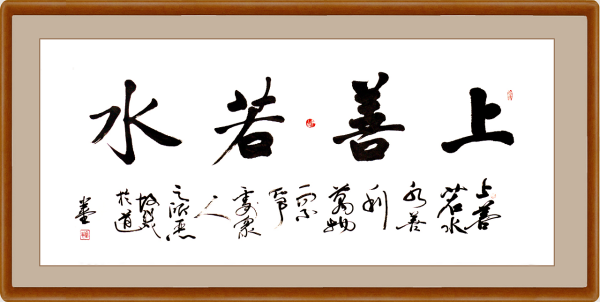 上善若水
上善
若水
水善
利
萬物
而不
爭
處眾
人
之所惡
故幾
於道